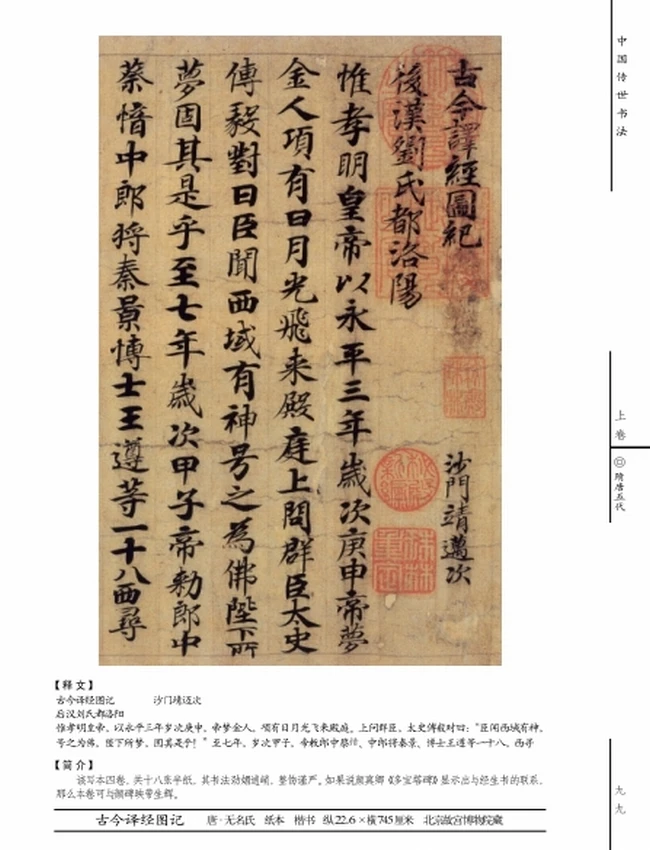 古今譯經圖紀
沙門靖邁次
後漢劉氏都洛陽
惟孝明皇帝以永平三年歲次庚申帝夢
金人項有日月光飛来殿庭上問群臣太史
傅毅對曰臣聞西域有神号之為佛陛下所
夢固其是乎至七年歲次甲子帝勑郎中
蔡愔中郎将秦景博士王遵等一十八西尋
中国传世书法
上卷
隋唐五代
九九
【释文】
古今译经图记 沙门靖迈次
后汉刘氏都洛阳
惟孝明皇帝，以永平三年岁次庚申，帝梦金人，项有日月光飞来殿庭。上问群臣，太史傅毅对曰：“臣闻西域有神，
号之为佛，陛下所梦，固其是乎！”至七年，岁次甲子，帝敕郎中蔡愔、中郎将秦景、博士王遵等一十八，西寻
【简介】
该写本四卷，共十八张半纸，其书法劲媚遒丽，整饬谨严。如果说颜真卿《多宝塔碑》显示出与经生书的联系，
那么本卷可与颜碑映带生辉。
古今译经图记 唐·无名氏 纸本 楷书 纵22.6×横745厘米 北京故宫博物院藏